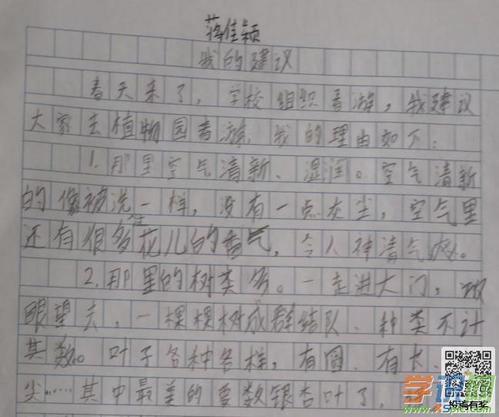 蒋佳颖
我的建议
春天来了，学校组织春游，我建议
大家去植物园春游，我的理由如下：
1.那里空气清新、湿润。空气清新
的像被洗一样，没有一点灰尘，空气里
还有很多花儿的香气，令人神清气爽。
2.那里的树类多。一走进大门，放
眼望去，一棵棵树成群结队，种类不计
其数。叶子各种各样，有圆、有长、
尖……其中最美的要数银杏叶了，